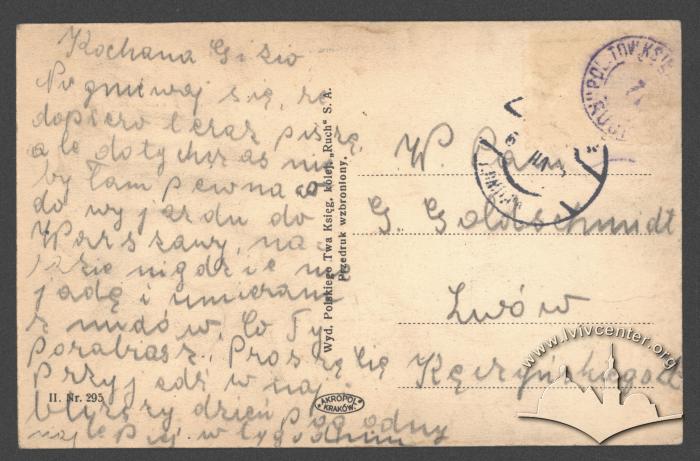 Kochana Gizio
Nie gniewaj się, że
dopiero teraz piszę,
ale dotychczas nie
byłam pewna co
do wyjazdu do
Warszawy, na
razie nigdzie nie
jadę i umieram
z nudów. Co Ty
porabiasz, Proszę Cię
przyjedź w naj
bliższy dzień pogodny
najlepiej w tygodniu
Wyd. Polskiego Twa Księg. kolej. „Ruch” S. A.
Przedruk wzbroniony.
II. Nr. 295
AKROPOL
KRAKÓW.
POL. TOW. KSIĘ
W. Pani
G. Goldschmidt
Lwów
Kęczyńskiego
www.lvivcenter.org